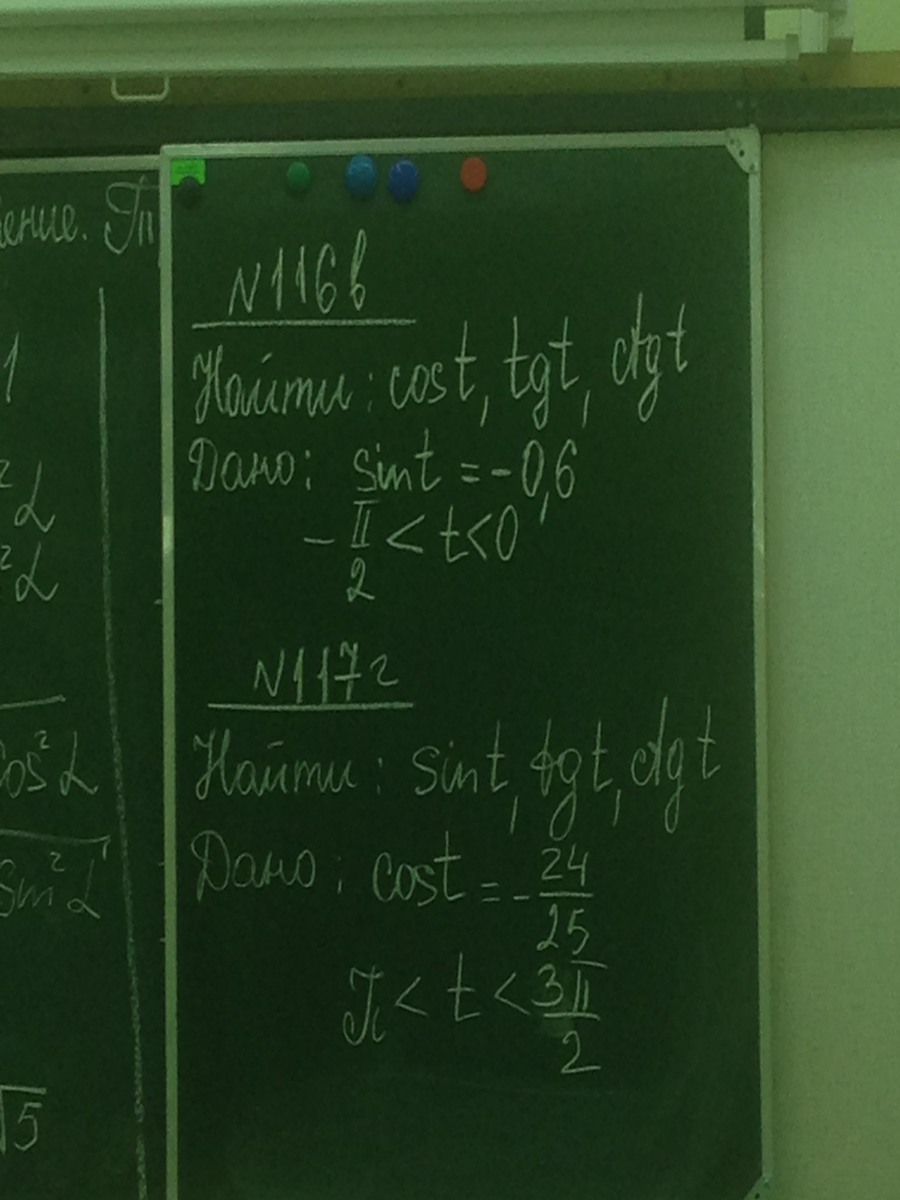 ение. Π
1
² α
² α
cos² α
sin² α
√5
N116в
Найти: cost, tgt, ctgt
Дано: sint = -0,6
- π/2 < t < 0
N117г
Найти: sint, tgt, ctgt
Дано: cost = - 24/25
π < t < 3π/2